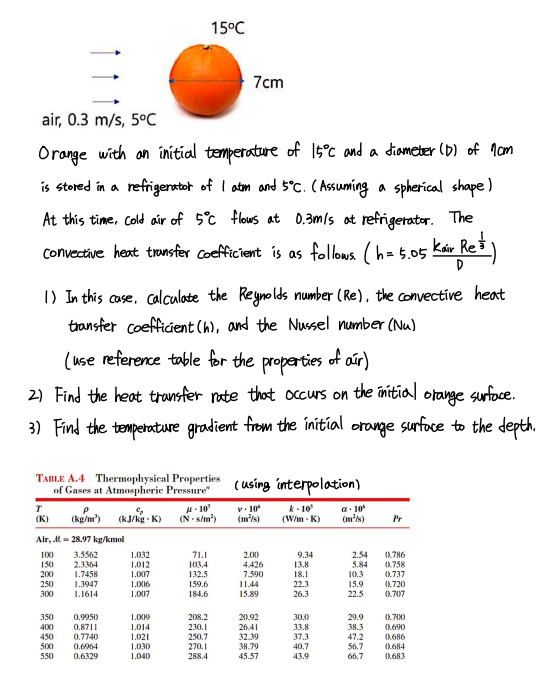 15°C
7cm
air, 0.3 m/s, 5°C
Orange with an initial temperature of 15°C and a diameter (D) of 7cm
is stored in a refrigerator of 1 atm and 5°C. (Assuming a spherical shape)
At this time, cold air of 5°C flows at 0.3m/s at refrigerator. The
convective heat transfer coefficient is as follows. (h = 5.05 kair Re^1/3 / D)
1) In this case, calculate the Reynolds number (Re), the convective heat
transfer coefficient (h), and the Nussel number (Nu)
(use reference table for the properties of air)
2) Find the heat transfer rate that occurs on the initial orange surface.
3) Find the temperature gradient from the initial orange surface to the depth.
TABLE A.4 Thermophysical Properties
of Gases at Atmospheric Pressure^a (using interpolation)
T ρ cp μ · 10^7 ν · 10^6 k · 10^3 α · 10^6
(K) (kg/m³) (kJ/kg · K) (N · s/m²) (m²/s) (W/m · K) (m²/s) Pr
Air, ℳ = 28.97 kg/kmol
100 3.5562 1.032 71.1 2.00 9.34 2.54 0.786
150 2.3364 1.012 103.4 4.426 13.8 5.84 0.758
200 1.7458 1.007 132.5 7.590 18.1 10.3 0.737
250 1.3947 1.006 159.6 11.44 22.3 15.9 0.720
300 1.1614 1.007 184.6 15.89 26.3 22.5 0.707
350 0.9950 1.009 208.2 20.92 30.0 29.9 0.700
400 0.8711 1.014 230.1 26.41 33.8 38.3 0.690
450 0.7740 1.021 250.7 32.39 37.3 47.2 0.686
500 0.6964 1.030 270.1 38.79 40.7 56.7 0.684
550 0.6329 1.040 288.4 45.57 43.9 66.7 0.683